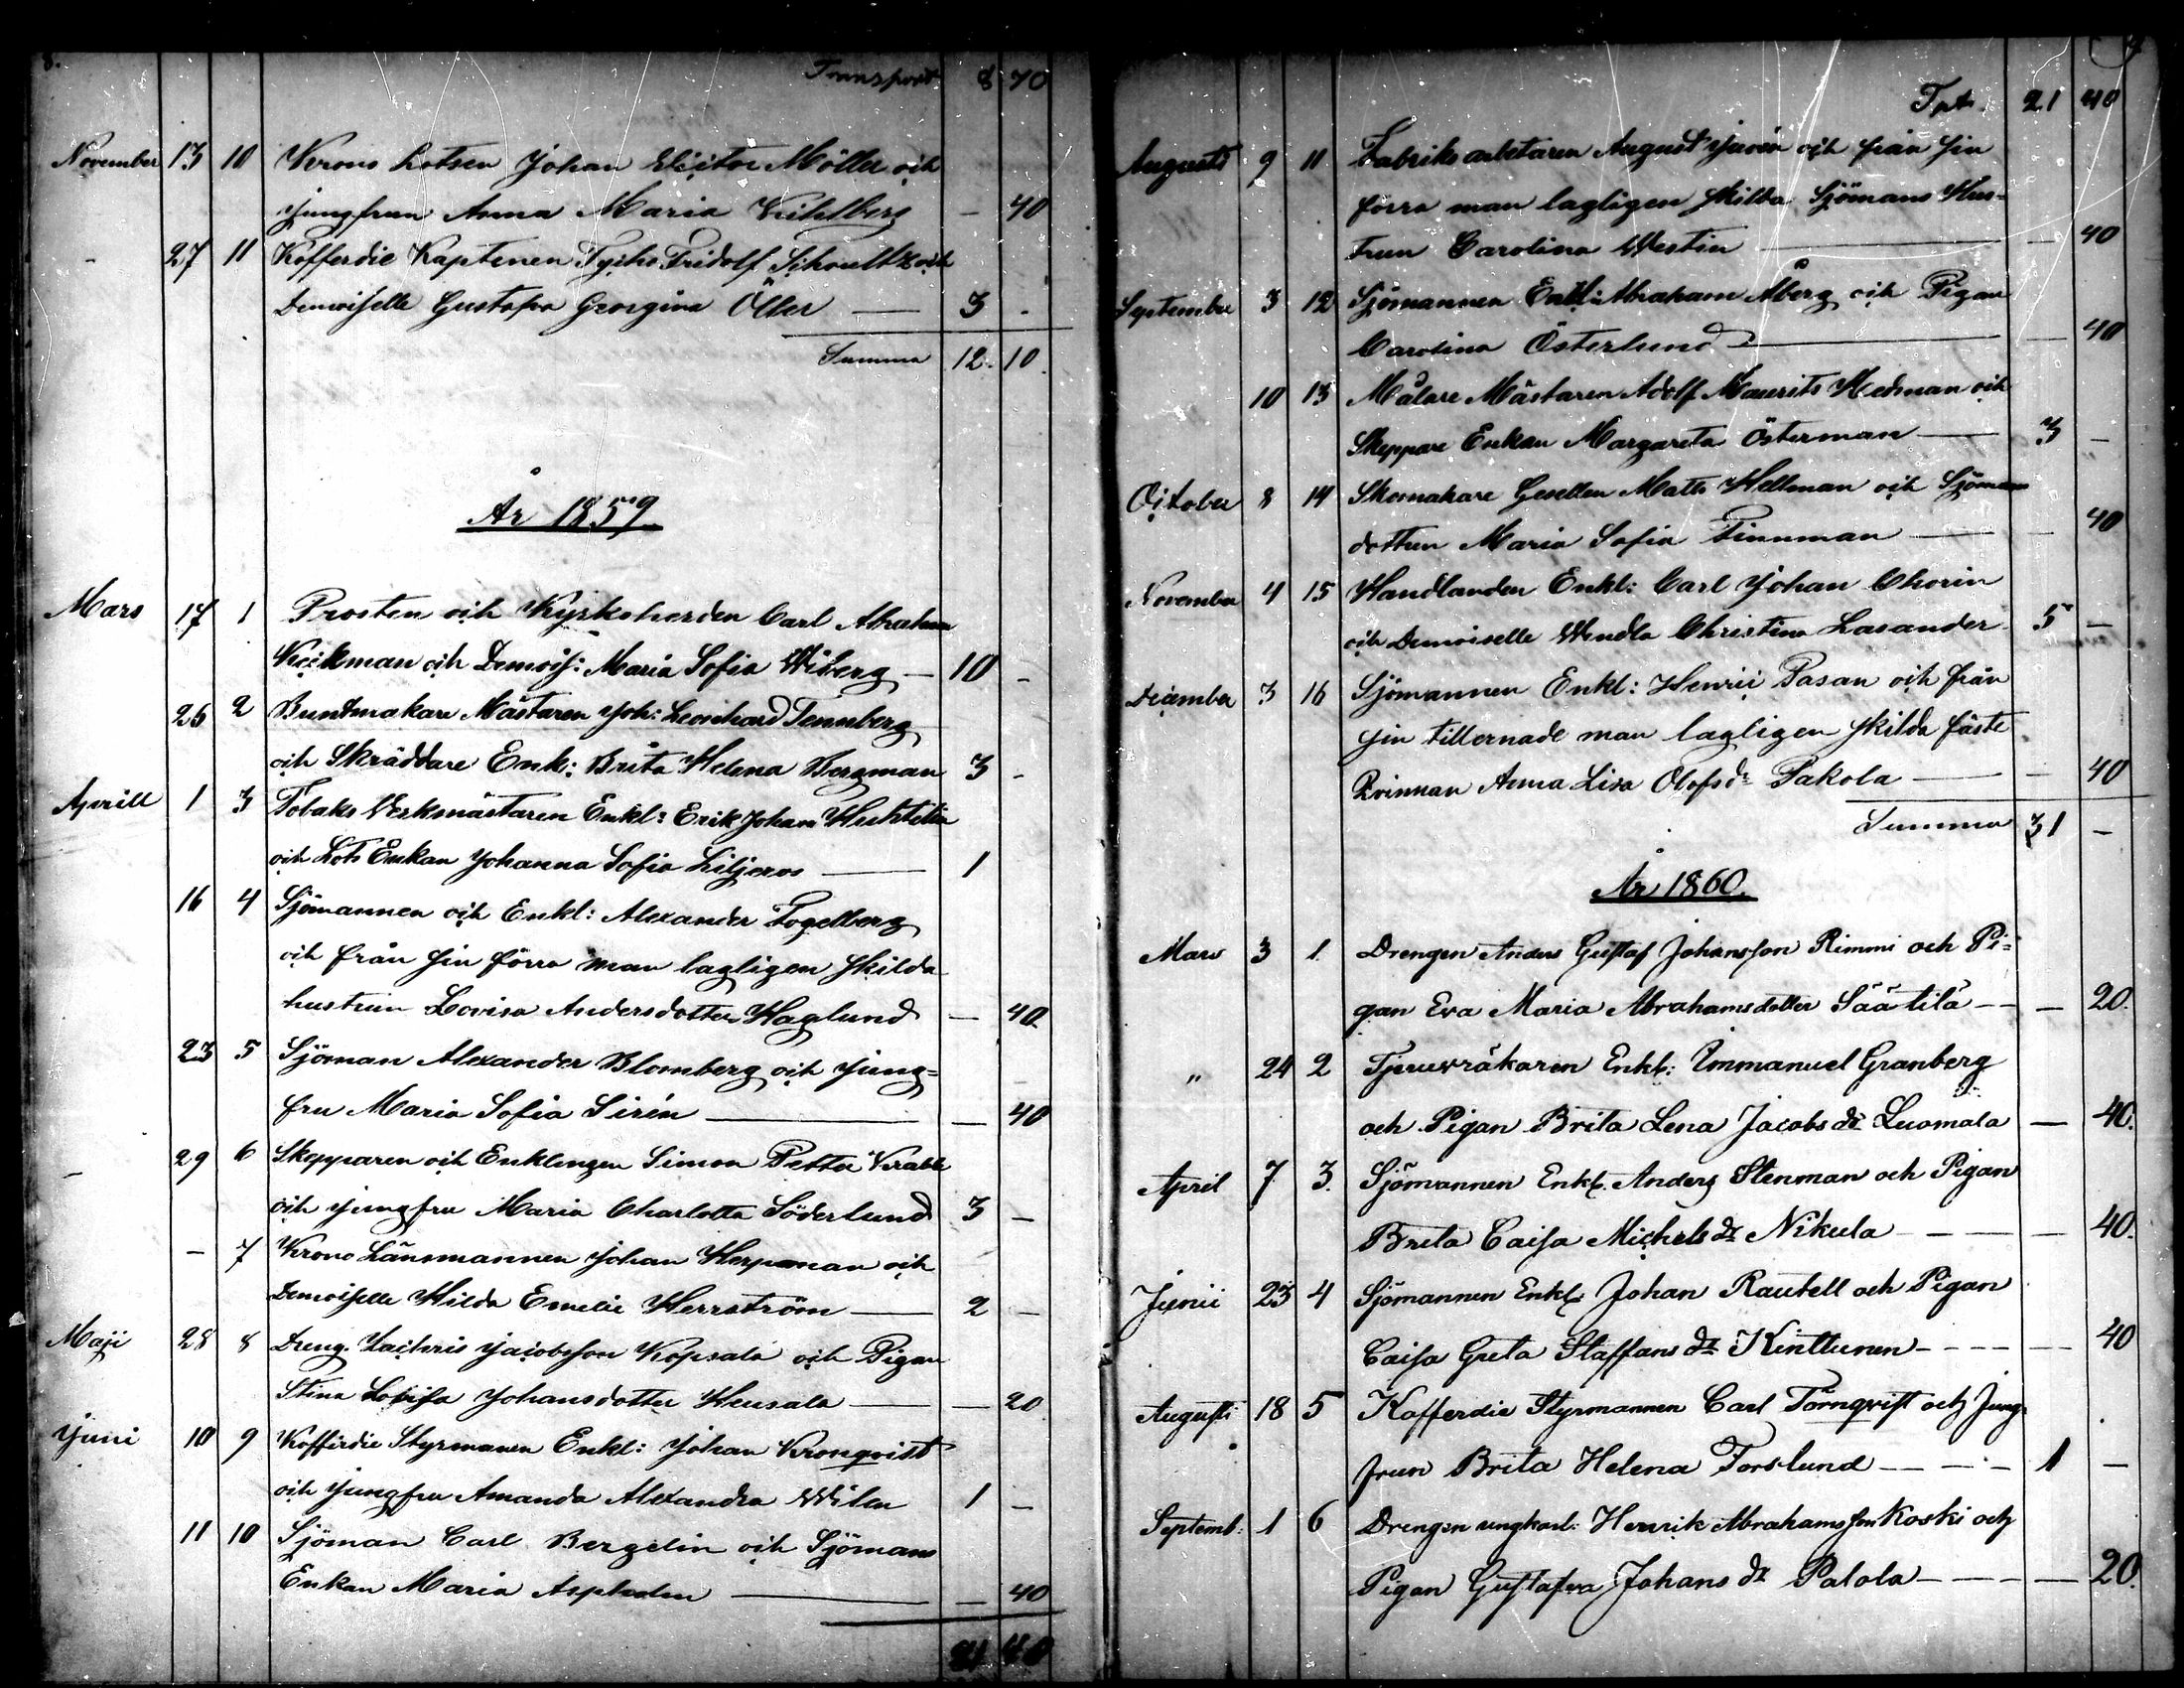 8.
Transport 8 70
November 13 10 Krono Lotsen Johan Victor Möller och
jungfrun Anna Maria Kihlberg — 40
- 27 11 Kofferdie Kaptenen Tycho Fridolf Schoultz och
Demoiselle Gustafva Georgina Öller — 3 -
Summa 12. 10.
År 1859
Mars 17 1 Prosten och Kyrkoherden Carl Abraham
Keckman och Demois: Maria Sofia Wiberg — 10 -
25 2 Buntmakare Mästaren Joh: Leonhard Tennberg
och Skräddare Enk: Brita Helena Bergman 3 -
Aprill 1 3 Tobaks Verkmästaren Enkl: Erik Johan Huhtelin
och Lots Enkan Johanna Sofia Liljeros — 1
16 4 Sjömannen och Enkl: Alexander Fogelberg
och från sin förra man lagligen skilda
hustrun Lovisa Andersdotter Haglund — 40
23 5 Sjöman Alexander Blomberg och Jung=
fru Maria Sofia Sirén — 40
- 29 6 Skepparen och Enklingen Simon Petter Krabb
och jungfru Maria Charlotta Söderlund 3 —
- 7 Krono Länsmannen Johan Herpman och
Demoiselle Hilda Emelie Herrström — 2 —
Maji 28 8 Dreng. Zachris Jacobsson Kopsala och Pigan
Stina Lovisa Johansdotter Heusala — 20
Juni 10 9 Koffirdie Styrmanen Enkl: Johan Kronqvist
och Jungfru Amanda Alexandra Wilen 1 —
11 10 Sjöman Carl Bergelin och Sjömans
Enkan Maria Asplholm — 40
21 40
9
Tpt. 21 40
Augusti 9 11 Fabriks arbetaren August Juvén och från sin
förra man lagligen skilda Sjömans Hus-
trun Carolina Westin — 40
September 3 12 Sjömannen Enkl: Abraham Åberg och Pigan
Carolina Österlund — 40
10 13 Målare Mästaren Adolf Maurits Hedman och
Skeppare Enkan Margareta Österman — 3 —
October 8 14 Skomakare Gesellen Matts Hellman och Sjömans
dottren Maria Sofia Finnman — 40
November 4 15 Handlanden Enkl: Carl Johan Chorin
och Demoiselle Wendla Christina Lasander 5 —
December 3 16 Sjömannen Enkl: Henric Pasan och från
sin tillernade man lagligen skilda fäste
Qvinnan Anna Lisa Olofsdr Pakola — 40
Summa 31 —
År 1860.
Mars 3 1. Drengen Anders Gustaf Johansson Rimmi och Pi=
gan Eva Maria Abrahamsdotter Säätilä — 20.
" 24 2 Tjeruvräkaren Enkl: Immanuel Granberg
och Pigan Brita Lena Jacobs dr Luomala — 40.
April 7 3. Sjömannen Enkl. Anders Stenman och Pigan
Brita Caisa Michels dr Nikula — 40.
Junii 23 4 Sjömannen Enkl. Johan Rautell och Pigan
Caisa Greta Staffans dr Kinttunen — 40
Augusti 18 5 Kofferdie Styrmannen Carl Törnqvist och Jung-
frun Brita Helena Forslund — 1 —
Septemb: 1 6 Drengen ungkarl: Henrik Abrahamsson Koski och
Pigan Gustafva Johans dr Palola — 20.